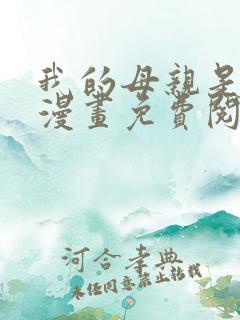 我的母親是
漫畫免費閱
河合孝典
未经同意禁止转载